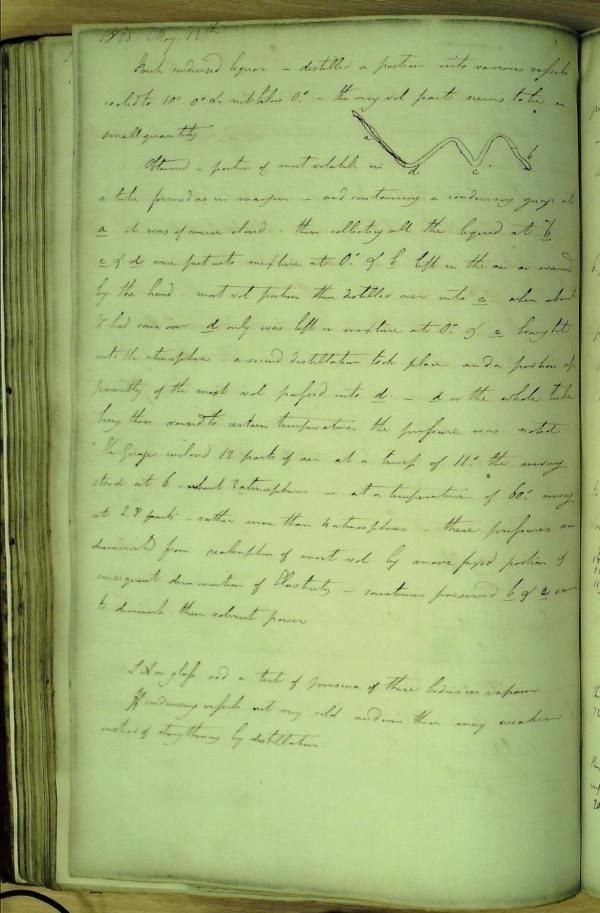 1825 May. 13th
Fresh condensed liquor - distilled a portion into various vessels
cooled to 10° 0° &c. not below 0° - the very vol parts seems to be in
small quantity
a b c d
Obtained a portion of most volatile in
a tube formed as in margin - and containing a condensing gauge at
a it was of course closed. then collecting all the liquid at b
c & d were put into mixture at 0° & b left in the air or warmed
by the hand - most vol portion then distilled over into c when about
had come over d only was left in mixture at 0° & c brought
into the atmosphere - a second distillation took place and a portion ap-
parently of the most vol passed into d. - d or the whole tube
being then raised to certain temperatures the pressure was noted
The gauge inclosed 12 parts of air at a temp of 11° the mercury
stood at 6 - about 2 atmospheres - at a temperature of 60° mercury
at 2.8 parts - rather more than 4 atmospheres - these pressures are
diminished from reabsorption of most vol by more fixed portion &
consequent diminution of Elasticity - sometimes preserved b & c
to diminish their solvent power
glass rod a test of presence of these bodies in vapour
If condensing vessels not very cold and even then may weaken
instead of strengthening by distillation